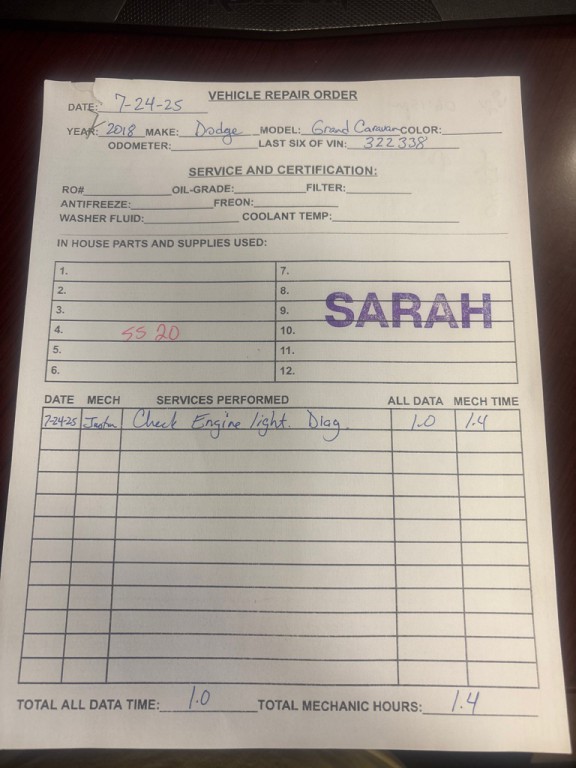 VEHICLE REPAIR ORDER
DATE: 7-24-25
YEAR: 2018 MAKE: Dodge MODEL: Grand Caravan COLOR:
ODOMETER: LAST SIX OF VIN: 322338
SERVICE AND CERTIFICATION:
RO# OIL-GRADE: FILTER:
ANTIFREEZE: FREON:
WASHER FLUID: COOLANT TEMP:
IN HOUSE PARTS AND SUPPLIES USED:
1. 7.
2. 8.
3. 9. SARAH
4. SS 20 10.
5. 11.
6. 12.
DATE MECH SERVICES PERFORMED ALL DATA MECH TIME
7-24-25 Check Engine light. Diag. 1.0 1.4
TOTAL ALL DATA TIME: 1.0 TOTAL MECHANIC HOURS: 1.4